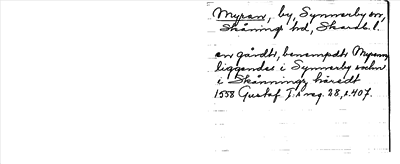 Myran, by, Synnerby sn,
Skånings hd, Skarab. l.
en gårdt, benempdt Myrann
liggendes i Synnerby sochn
i Skånningz häredt
1558 Gustaf I:s reg. 28, s. 407.